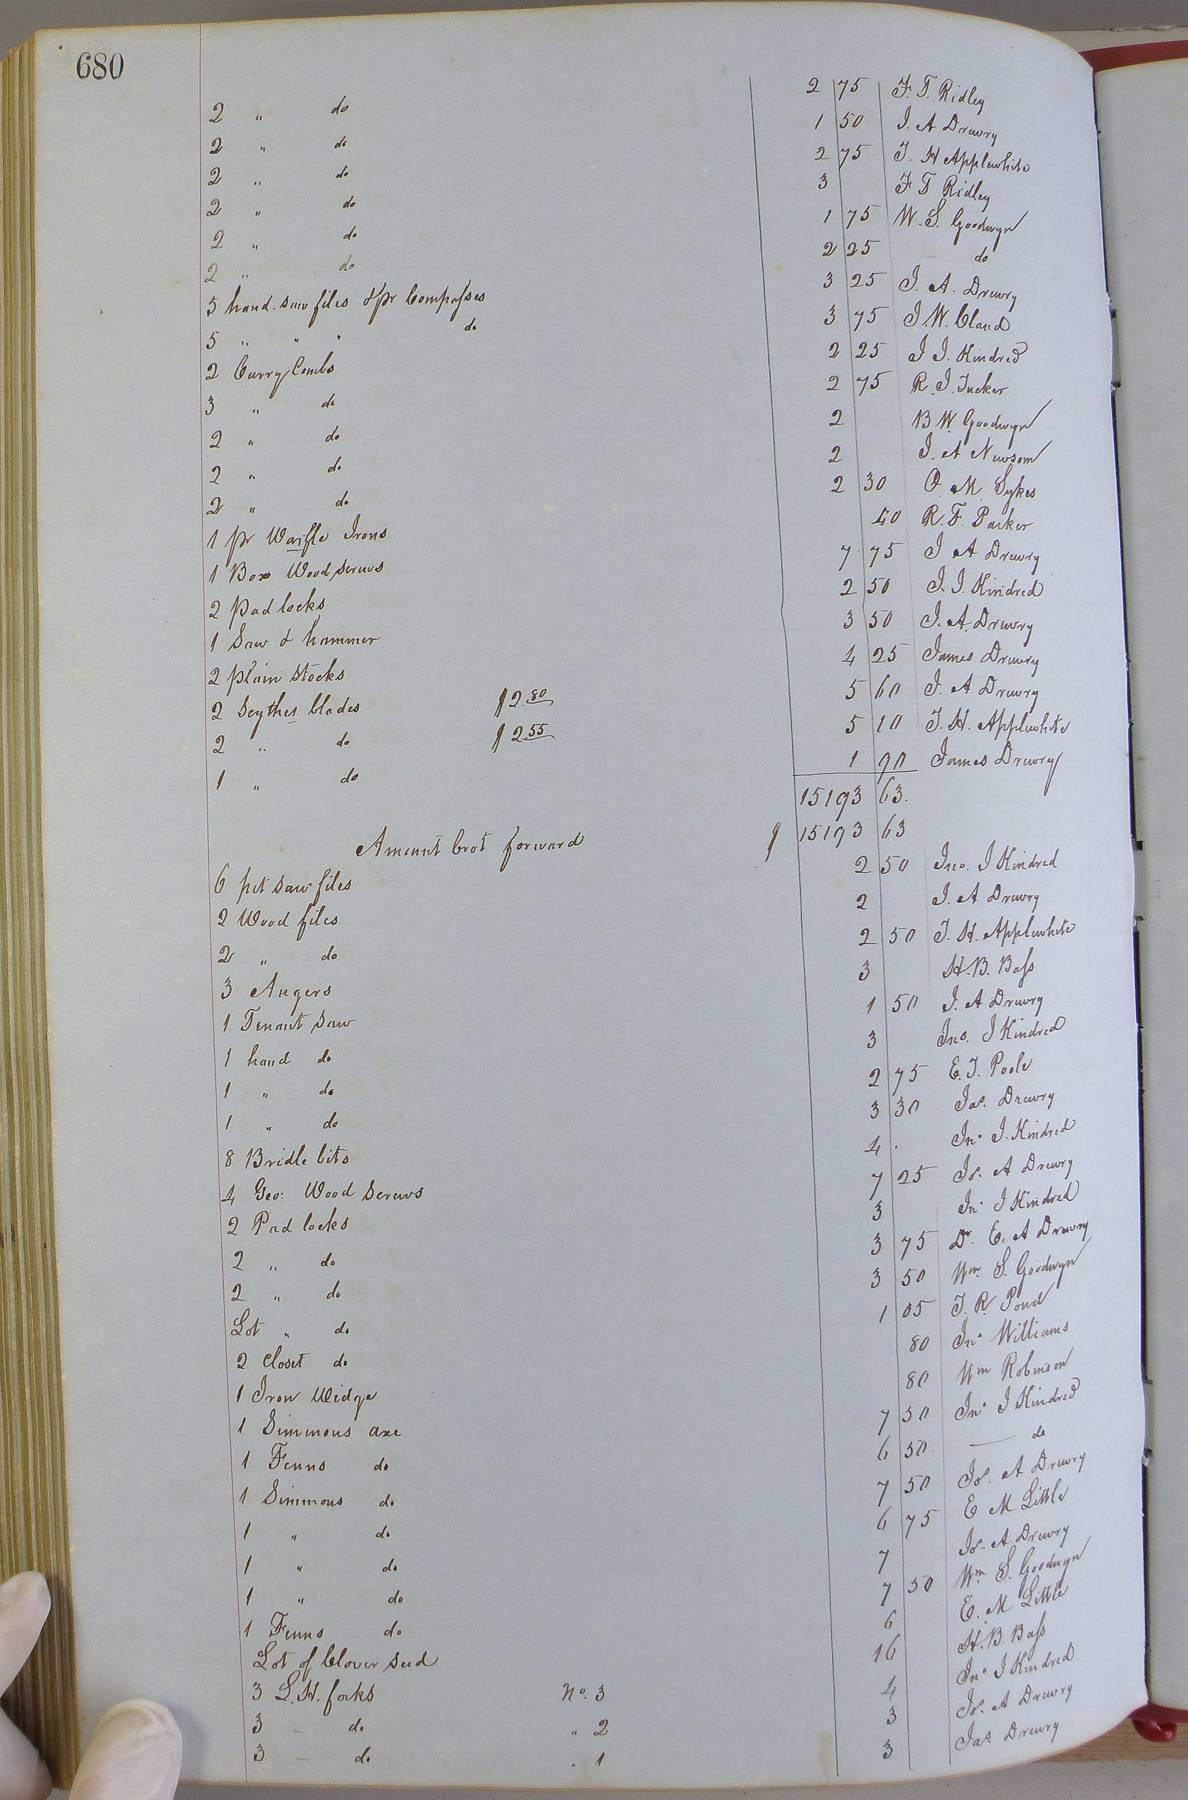 680
2 " do 2 75 F. T. Ridley
2 " do 1 50 J. A Drewry
2 " do 2 75 T. H Applewhite
2 " do 3 F T Ridley
2 " do 1 75 W. S. Goodwyn
2 " do 2 25 do
5 hand saw files & pr Compasses 3 25 J. A. Drewry
5 " " " do 3 75 J. W. Claud
2 Curry Combs 2 25 J J. Kindred
3 " do 2 75 R. J. Tucker
2 " do 2 B W. Goodwyn
2 " do 2 J. A Newsom
2 " do 2 30 O. M. Sykes
1 pr Waifle Irons 40 R. F. Parker
1 Box Wood screws 7 75 J A Drewry
2 Pad locks 2 50 J. J. Kindred
1 Saw & hammer 3 50 J. A. Drewry
2 plain stocks 4 25 James Drewry
2 Scythes blades $2.80 5 60 J. A Drewry
2 " do $2.55 5 10 T. H. Applewhite
1 " do 1 90 James Drewry
15193 63.
Amount brot forward $ 15193 63
6 pit saw files 2 50 Jno. J Kindred
2 Wood files 2 J. A Drewry
2 " do 2 50 T. H. Applewhite
3 Augers 3 H. B. Bass
1 Tenant saw 1 50 J. A Drewry
1 hand do 3 Jno. J Kindred
1 " do 2 75 E. T. Poole
1 " do 3 30 Jas. Drewry
8 Bridle bits 4 . Jno J. Kindred
4 Gro: Wood Screws 7 25 Js. A Drewry
2 Pad locks 3 Jno J Kindred
2 " do 3 75 Dr. E. A Drewry
2 " do 3 50 Wm. S. Goodwyn
Lot " do 1 05 T. R. Pond
2 Closet do 80 Jno Williams
1 Iron Widge 80 Wm Robinson
1 Simmons axe 7 50 Jno J Kindred
1 Fenns do 6 50 — do
1 Simmons do 7 50 Js. A Drewry
1 " do 6 75 E M Little
1 " do 7 Js. A Drewry
1 " do 7 50 Wm S. Goodwyn
1 Fenns do 6 E. M Little
Lot of Clover seed 16 H. B. Bass
3 L. H. forks No. 3 4 Jno J Kindred
3 — do " 2 3 Js. A Drewry
3 — do " 1 3 Jas Drewry